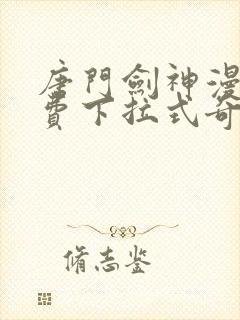 唐門劍神漫
費下拉式奇
脩志鉴